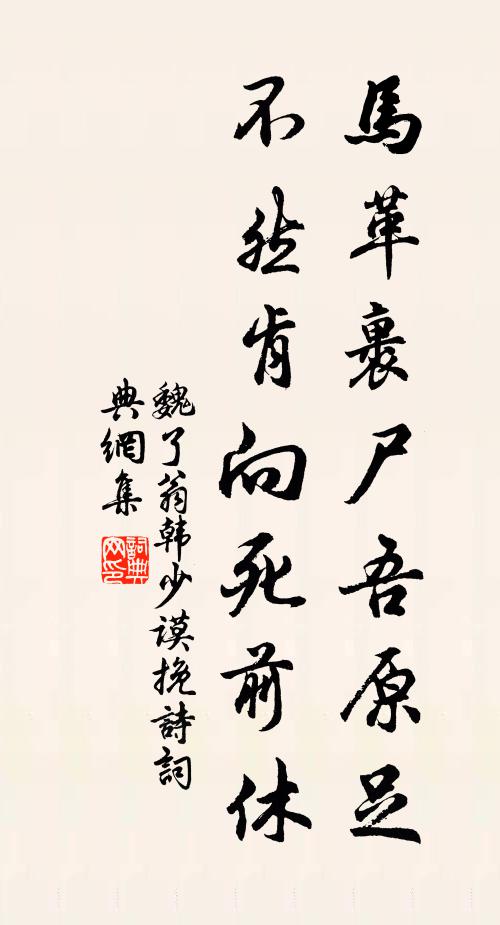 馬革裹尸吾原足
不然肯向死前休
魏了翁韩少谟挽詩詞
典網集
詞典
网印